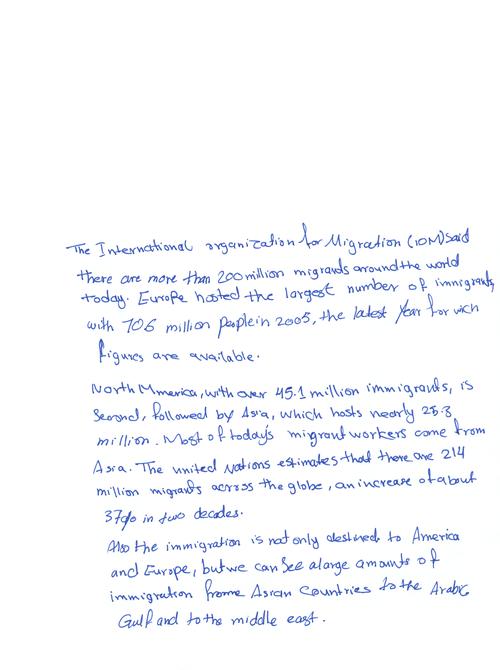 The International organization for Migration (IOM) Said
there are more than 200 million migrants around the world
today. Europe hosted the largest number of immigrants,
with 70.6 million people in 2005, the latest year for wich
figures are available.
North Mmerica, with over 45.1 million immigrants, is
Second, followed by Asia, which hosts nearly 25.3
million. Most of today's migrant workers come from
Asia. The united Nations estimates that there are 214
million migrants across the globe, an increase of about
37% in two decades.
Also the immigration is not only destined to America
and Europe, but we can see a large amounts of
immigration frome Asian Countries to the Arabic
Gulf and to the middle east.